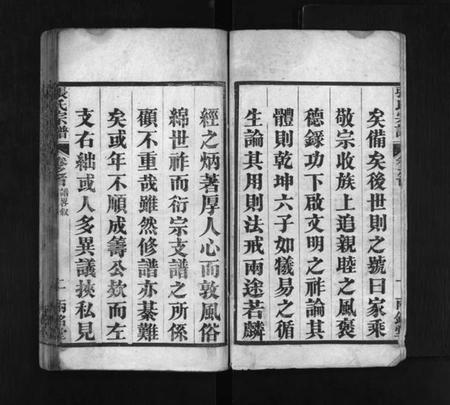 矣備矣後世則之號曰家乘
敬宗收族上追親睦之風褒
德錄功下啟文明之祚論其
體則乾坤六子如犧易之循
生論其用則法戒兩途若麟
張氏宗譜
經之炳著厚人心而敦風俗
綿世祚而衍宗支譜之所係
顧不重哉雖然修譜亦綦難
矣或年不順成籌公欸而左
支右絀或人多異議挾私見